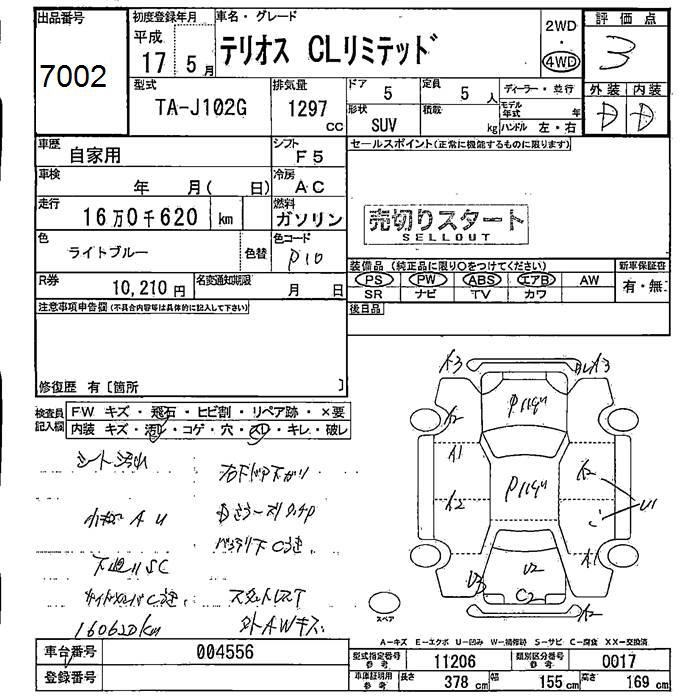 出品番号
7002
初度登録年月
平成
17 5 月
車名・グレード
テリオス CLリミテッド
2WD
・
4WD
評価点
3
外装 内装
D D
型式
TA-J102G
排気量
1297
cc
ドア
5
定員
5 人
形状
SUV
積載
kg
ディーラー・並行
モデル年式 年
ハンドル 左・右
車歴
自家用
シフト
F5
車検
年 月( 日)
冷房
AC
走行
16万0千620 km
燃料
ガソリン
色
ライトブルー
色替
色コード
P10
R券
10,210 円
名変通知期限
月 日
セールスポイント(正常に機能するものに限ります)
売切りスタート
SELLOUT
装備品 (純正品に限り○をつけてください)
PS PW ABS エアB AW
SR ナビ TV カワ
新車保証書
有・無
後日品
注意事項申告欄(不具合内容等は具体的に記入して下さい)
修復歴 有〔箇所 〕
検査員記入欄
FW キズ・飛石・ヒビ割・リペア跡・×要
内装 キズ・汚レ・コゲ・穴・スレ・キレ・破レ
シート汚れ
右ドア下がり
小キズ A U
下廻りSC
160620km
外AWキズ
A3
A3
A2
A1
A2
A2
U1
A1
U3
U2
C2
A2
スペア
A-キズ E-エクボ U-凹み W-補修跡 S-サビ C-腐食 XX-交換済
車台番号
004556
登録番号
型式指定番号
参考
11206
類別区分番号
参考
0017
車庫証明用
参考
長さ 378 cm 幅 155 cm 高さ 169 cm